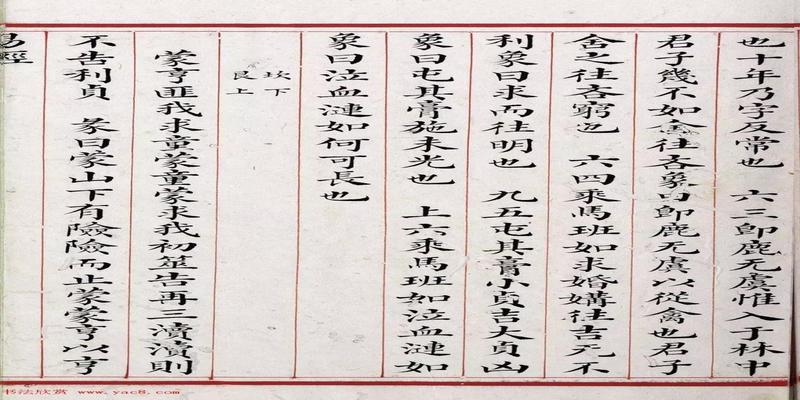 也十年乃字反常也 六三即鹿无虞惟入于林中
君子幾不如舍往吝象曰即鹿无虞以從禽也君子
舍之往吝窮也 六四乘馬班如求婚媾往吉无不
利象曰求而往明也 九五屯其膏小貞吉大貞凶
象曰屯其膏施未光也 上六乘馬班如泣血漣如
象曰泣血漣如何可長也
坎下
艮上
蒙亨匪我求童蒙童蒙求我初筮告再三瀆瀆則
不告利貞 彖曰蒙山下有險險而止蒙蒙亨以亨
易經
书法欣赏 www.yac8.com